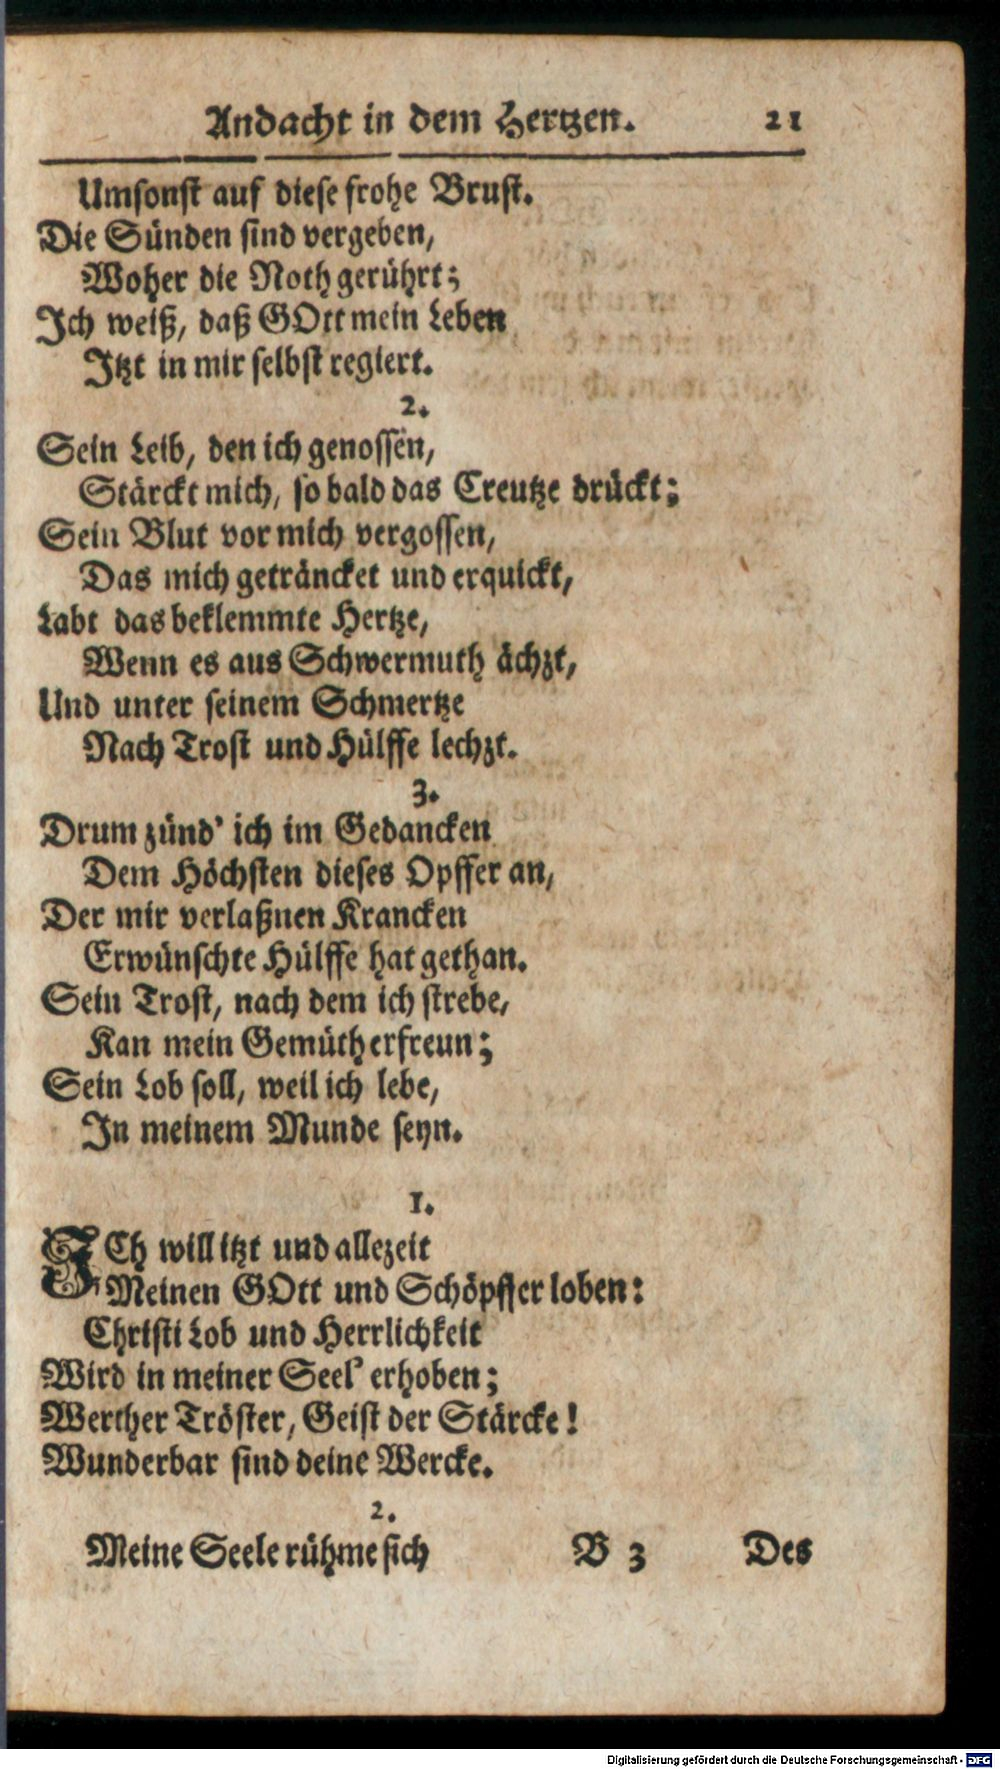 Andacht in dem Hertzen. 21
Umsonst auf diese frohe Brust.
Die Sünden sind vergeben,
Woher die Noth gerührt;
Ich weiß, daß GOtt mein Leben
Itzt in mir selbst regiert.
2.
Sein Leib, den ich genossen,
Stärckt mich, so bald das Creutze drückt;
Sein Blut vor mich vergossen,
Das mich geträncket und erquickt,
Labt das beklemmte Hertze,
Wenn es aus Schwermuth ächzt,
Und unter seinem Schmertze
Nach Trost und Hülffe lechzt.
3.
Drum zünd' ich im Gedancken
Dem Höchsten dieses Opffer an,
Der mir verlaßnen Krancken
Erwünschte Hülffe hat gethan.
Sein Trost, nach dem ich strebe,
Kan mein Gemüth erfreun;
Sein Lob soll, weil ich lebe,
In meinem Munde seyn.
1.
ICh will itzt und allezeit
Meinen GOtt und Schöpffer loben:
Christi Lob und Herrlichkeit
Wird in meiner Seel' erhoben;
Werther Tröster, Geist der Stärcke!
Wunderbar sind deine Wercke.
2.
Meine Seele rühme sich
B 3 Des
Digitalisierung gefördert durch die Deutsche Forschungsgemeinschaft - DFG